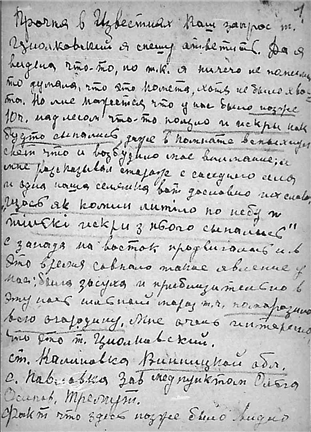 Прочла в Известиях Ваш запрос т.
Циолковский я спешу ответить. Да я
видела что-то, но т.к. я ничего не понимаю
то думала, что это комета, хотя не было хвос-
та. Но мне кажется что у нас было позже
10ч. над лесом что-то и искры как
будто сыпались, даже в комнате вспыхнул
свет что и возбудило мое внимание; а
мне рассказывал сторож с соседнего села
и одна наша селянка вот дословно их слова
"щось як комин литіло по небу и
тільки іскри з нього сыпались"
с запада на восток продвигалось и в
это время совпало такое явление у
нас: была засуха и приблизительно в
эту ночь мороз т.ч. поморозило
всю огородину. Мне очень интересно
что это т. Циолковский.
ст. Калиновка Винницкой обл.
с. Павловка Зав медпунктом Ольга
Осиповна
Факт что здесь позже было видно